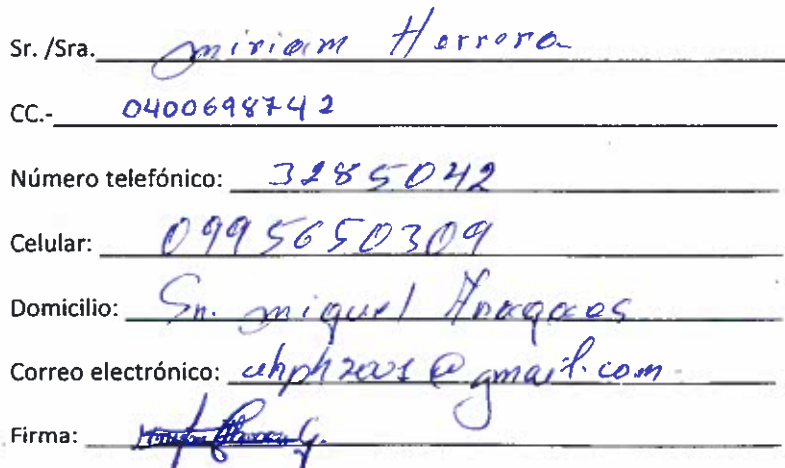 Sr. /Sra. miriam Herrera
CC.- 0400698742
Número telefónico: 3285042
Celular: 0995650309
Domicilio: Sn. miguel Anagaes
Correo electrónico: uhph2001@gmail.com
Firma: